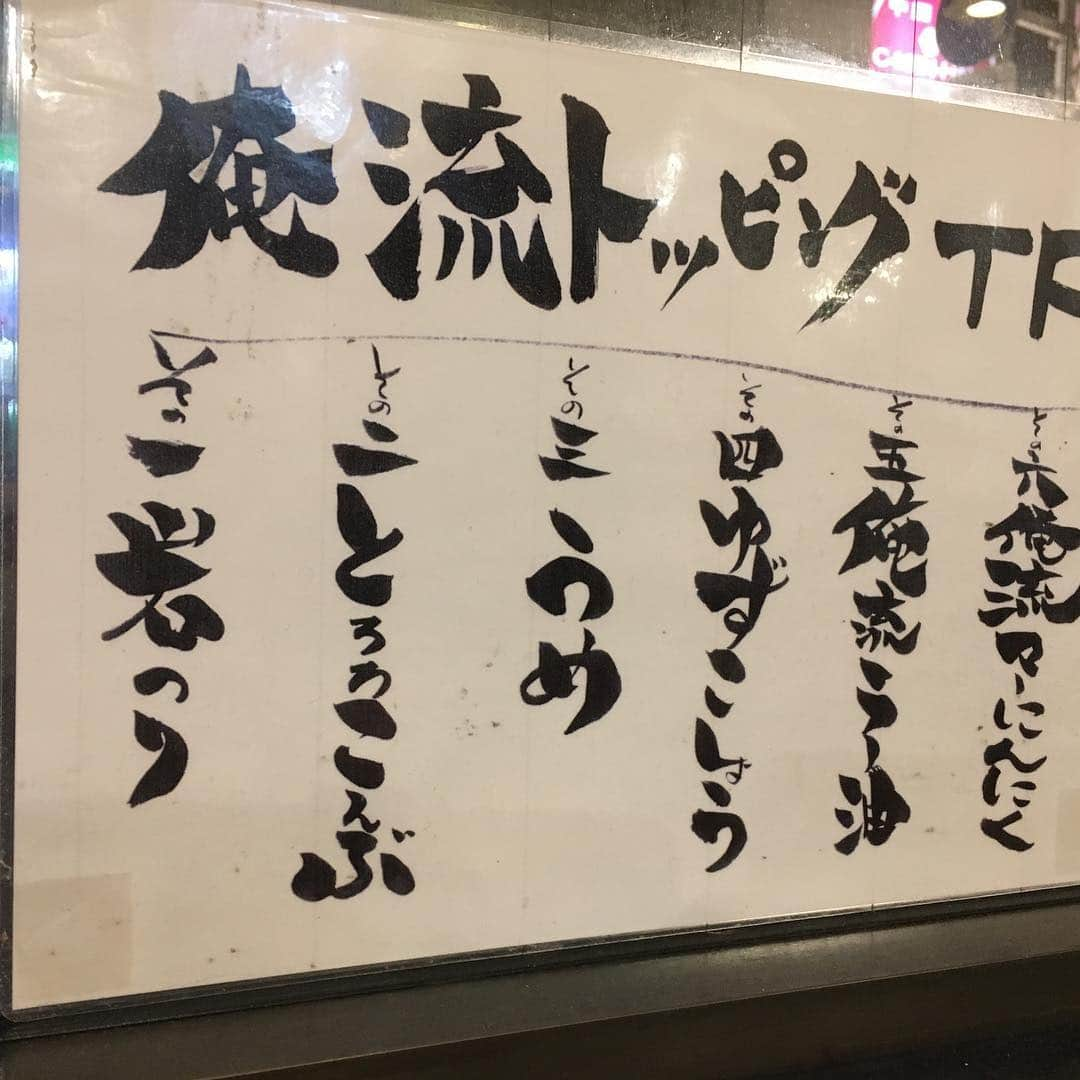 俺流トッピング TR
その一 岩のり
その二 とろろこんぶ
その三 うめ
その四 ゆずこしょう
その五 俺流ラー油
その六 俺流マーにんにく